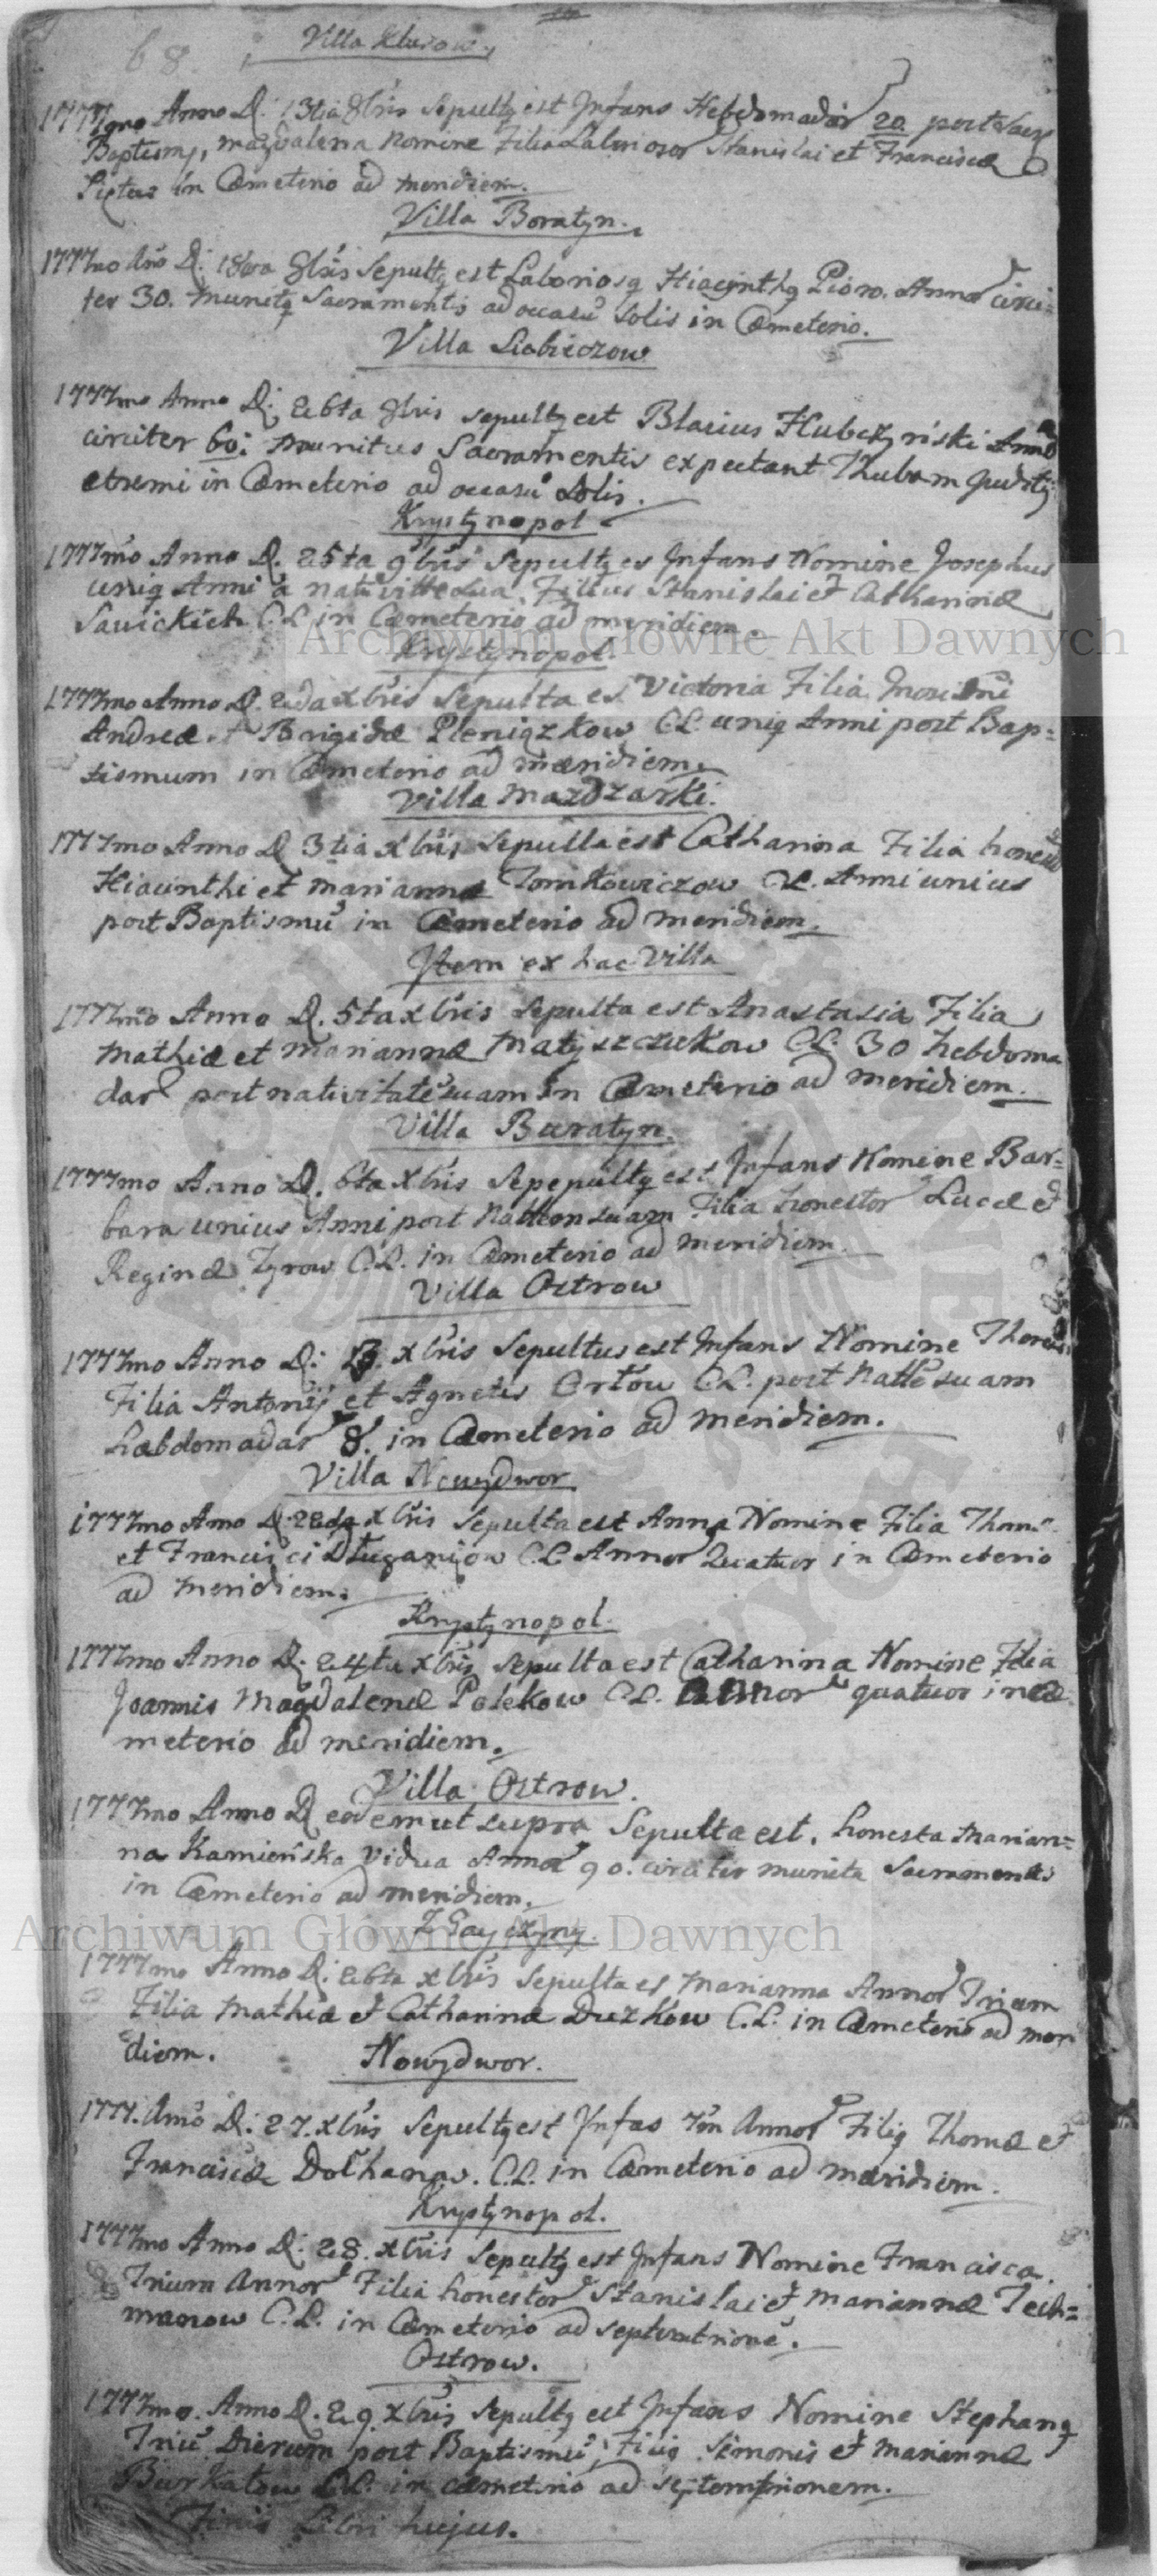 68. Villa Klusow.
1777mo Anno D: 13tia 8bris Sepultq est Infans Hebdomadar 20. post Sacr
Baptismq, Magdalena Nomine Filia Laborioror Stanislai et Franciscæ
in Cæmeterio ad meridiem.
Villa Boratyn.
1777mo Ano D: 18va 8bris Sepultq est Laboriosq Hiacynthq Pioro. Annor circi-
ter 30. munitq Sacramentis ad occasu Solis in Cæmeterio.
Villa
1777mo Anno D: 26ta 8bris sepultq est Blasius Hubczyński Anno
circiter 60: munitus Sacramentis expectant Thubam Judicij
etremi in Cæmeterio ad occasu Solis.
Krystynopol
1777mo Anno D. 25ta 9bris Sepultq es Infans Nomine Josephus
uniq Anni a nativitte sua. Filius Stanislai et Catharinæ
Sawickich C.L. in Cæmeterio ad meridiem.
Archiwum Główne Akt Dawnych
Krystynopol.
1777mo Anno D. 2da xbris Sepulta es Victoria Filia
Andreæ et Brigidæ Pieniązkow C.L. uniq Anni post Bap-
tismum in Cæmeterio ad meridiem.
Villa Mazdzarki.
1777mo Anno D 3tia xbris Sepulta est Catharina Filia
Hiacinthi et Mariannæ Tomkowiczow C.L. Anni unius
post Baptismu in Cæmeterio ad meridiem.
Item ex hac Villa
1777mo Anno D. 5ta xbris Sepulta est Anastasia Filia
Mathiæ et Mariannæ Matyszczukow C.L. 30 hebdoma
dar post nativitate suam in Cæmeterio ad meridiem.
Villa Buratyn.
1777mo Anno D. 6ta Xbris Sepepultq est Infans Nomine Bar-
bara unius Anni post Nattem suam Filia honestor Lucæ et
Reginæ Tyrow C.L. in Cæmeterio ad meridiem.
Villa Ostrow
1777mo Anno D: xbris Sepultus est Infans Nomine
Filia Antonij et Agnetis Ortow C.L. post Natte suam
hebdomadar 8. in Cæmeterio ad meridiem.
Villa Nowydwor
1777mo Anno D. 22da xbris Sepulta est Anna Nomine Filia Thomæ
et Francisci C.L. Annor Quatuor in Cæmeterio
ad meridiem.
Krystynopol.
1777mo Anno D. 24ta xbris Sepulta est Catharina Nomine Filia
Joannis Magdalenæ Polekow C.L. Annor quatuor in Cæ
meterio ad meridiem.
Villa Ostrow.
1777mo Anno D eodem ut supra Sepulta est. honesta Marian-
na Kamieńska Vidua Annor 90. circiter munita Sacramentis
in Cæmeterio ad meridiem.
Archiwum Główne Akt Dawnych
1777mo Anno D: 26ta xbris Sepulta es Marianna Annor Trium
Filia Mathiæ et Catharinæ Duzkow C.L. in Cæmeterio ad meri
diem.
Nowydwor.
1777. Anno D: 27. xbris Sepultq est Infas Annor Filiq Thomæ et
Franciscæ C.L. in Cæmeterio ad meridiem.
Krystynopol.
1777mo Anno D: 28. xbris Sepultq est Infans Nomine Francisca.
Trium Annor Filia honestor Stanislai et Mariannæ Tech-
manow C.L. in Cæmeterio ad septentrione.
Ostrow.
1777mo. Anno D. 29. Xbris Sepultq est Infans Nomine Stephanq
Triu Dierum post Baptismu, Filiq Simonis et Mariannæ
Burkatow C.L. in cæmeterio ad septemtrionem.
Finis Libri hujus.